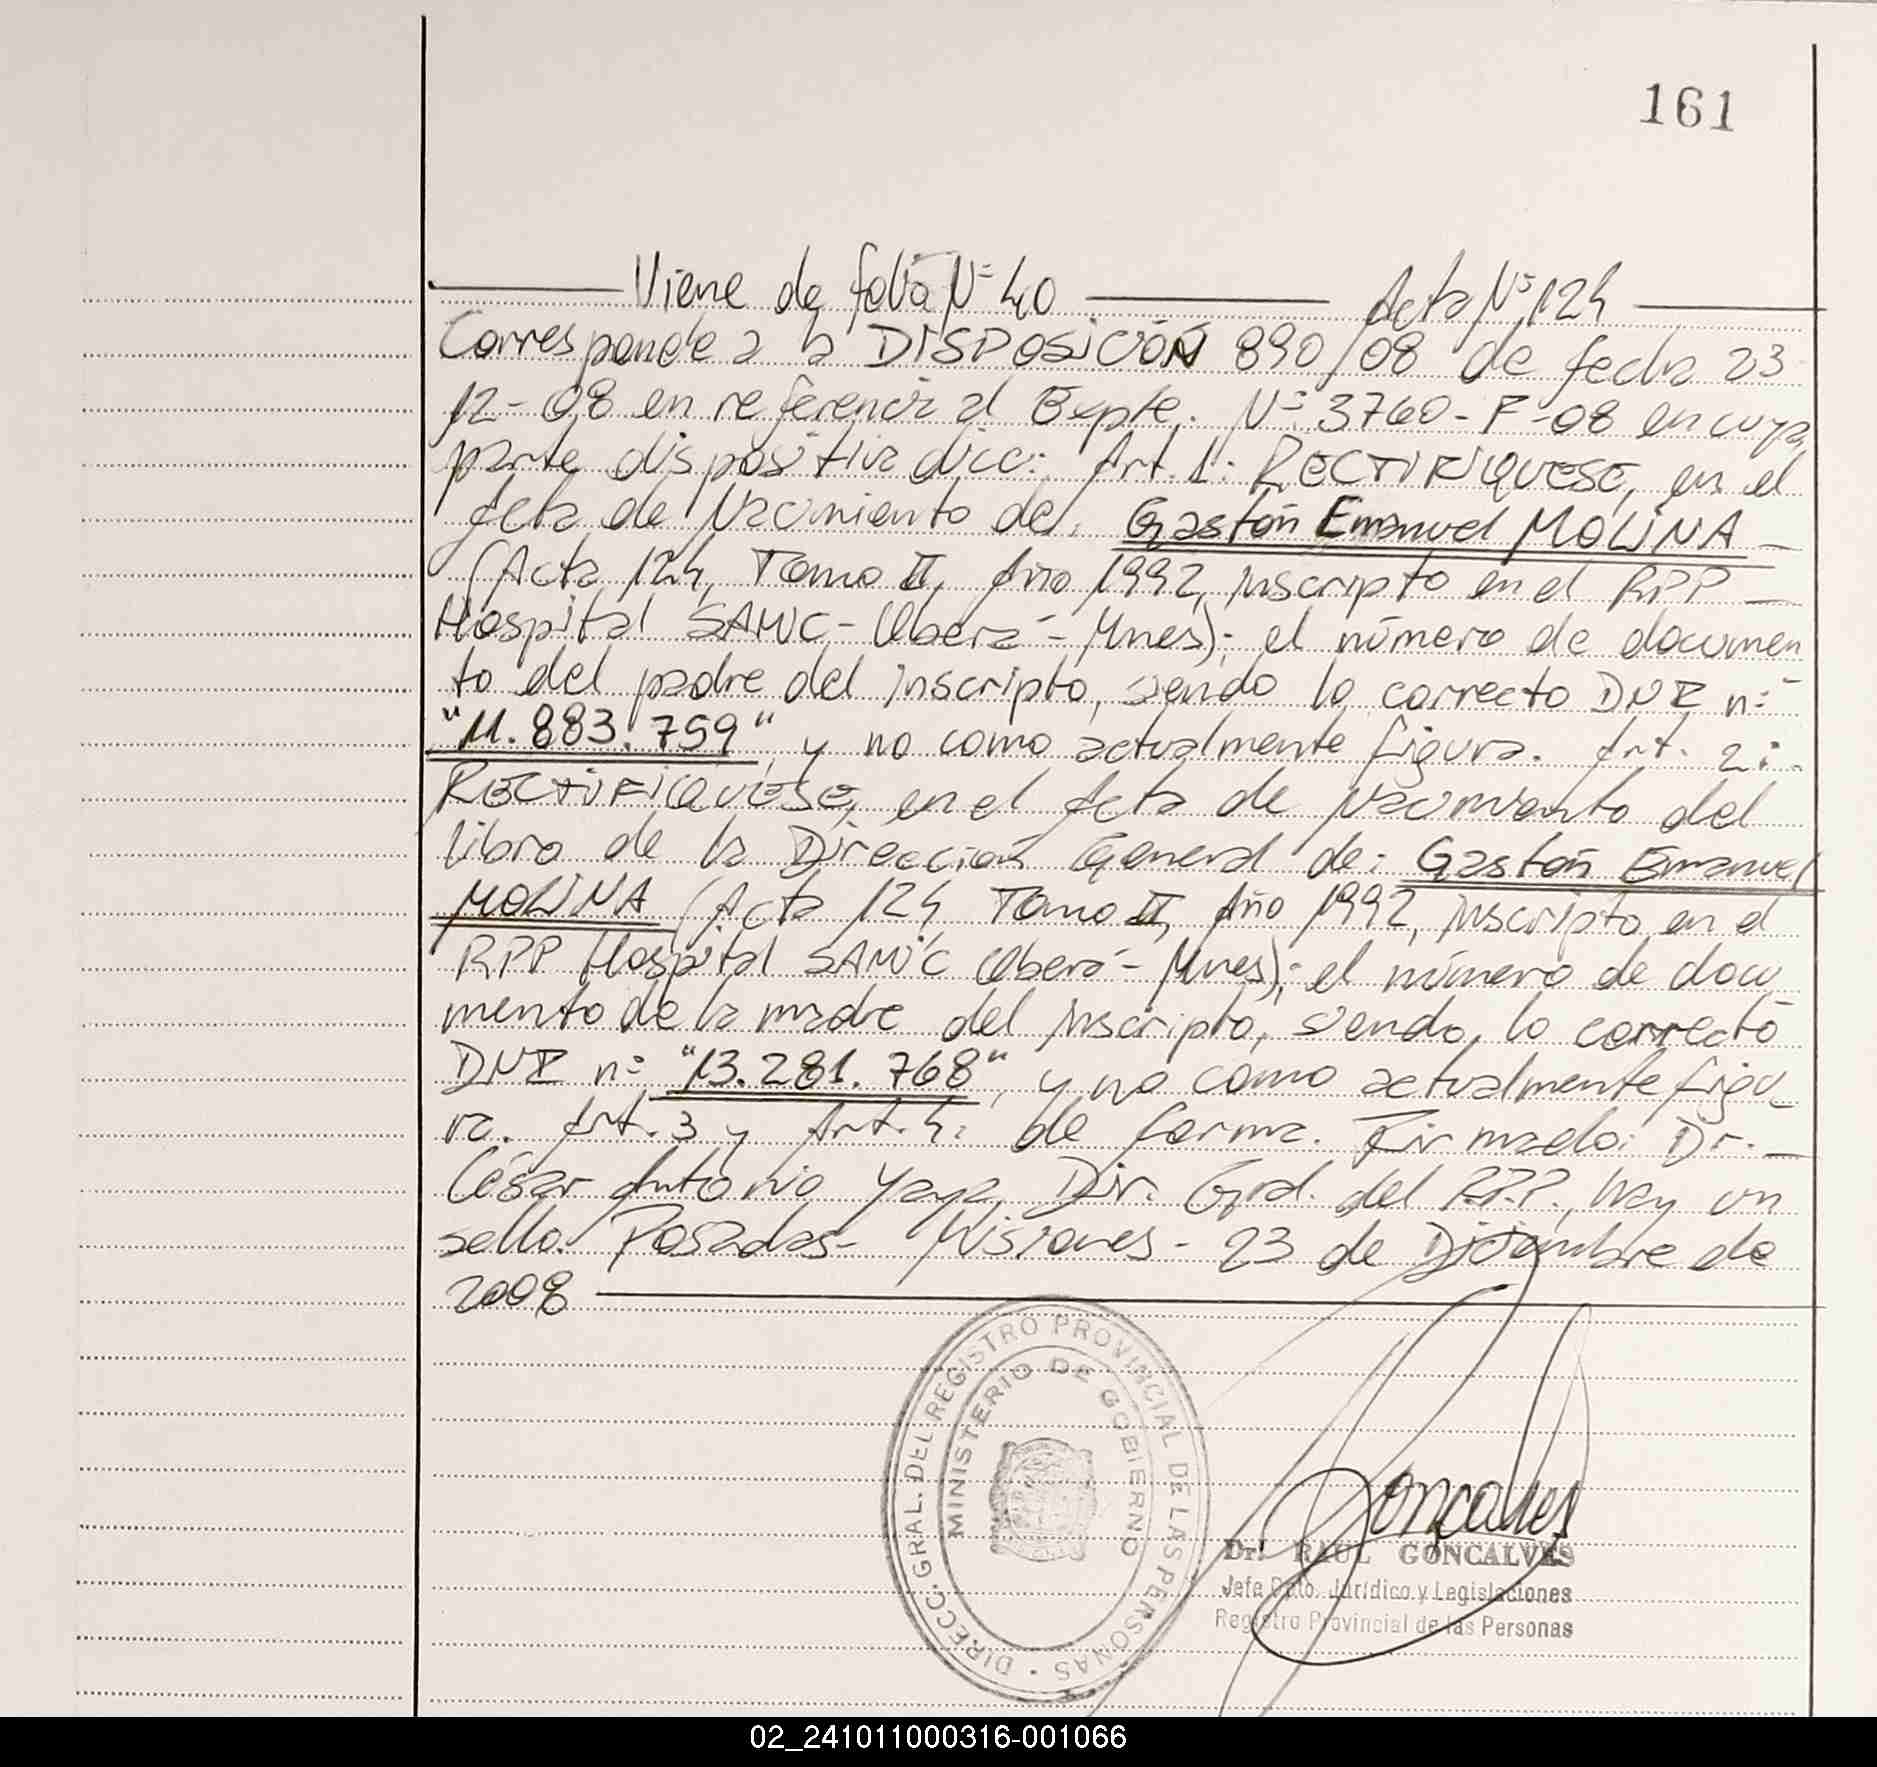 161
Viene de folio Nº 40 Acta Nº 124
Corresponde a la DISPOSICIÓN 890/08 de fecha 23
12-08 en referencia al Expte. Nº 3760-F-08 en cuya
parte dispositiva dice: Art. 1: RECTIFIQUESE, en el
Acta de Nacimiento de: Gastón Emanuel MOLINA
(Acta 124, Tomo II, Año 1992, inscripto en el RPP
Hospital SAMIC - Oberá - Mnes); el número de documen
to del padre del inscripto, siendo lo correcto DNI nº
"11.883.759", y no como actualmente figura. Art. 2:
RECTIFIQUESE, en el Acta de Nacimiento del
libro de la Dirección General de: Gastón Emanuel
MOLINA (Acta 124, Tomo II, Año 1992, inscripto en el
RPP Hospital SAMIC Oberá - Mnes); el número de docu
mento de la madre del inscripto, siendo, lo correcto
DNI nº "13.281.768", y no como actualmente figu_
ra. Art. 3 y Art. 4: de forma. Firmado: Dr.
César Antonio Yaya, Dir. Gral. del R.P.P., hay un
sello. Posadas - Misiones - 23 de Diciembre de
2008
DIRECC. GRAL. DEL REGISTRO PROVINCIAL DE LAS PERSONAS
MINISTERIO DE GOBIERNO
Goncalves
Dr. RAUL GONCALVES
Jefe Dpto. Jurídico y Legislaciones
Registro Provincial de las Personas
02_241011000316-001066